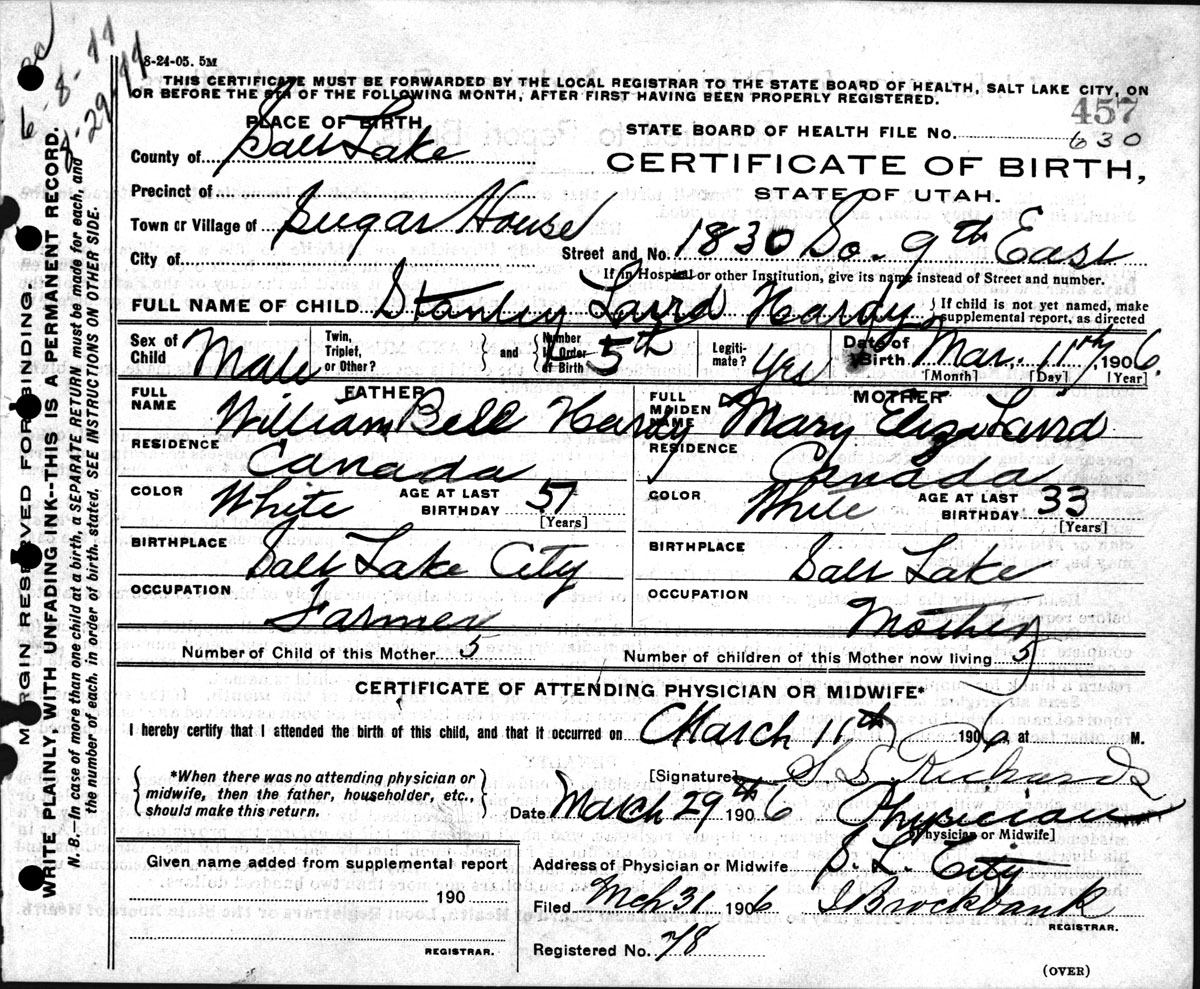 8-24-05. 5M
THIS CERTIFICATE MUST BE FORWARDED BY THE LOCAL REGISTRAR TO THE STATE BOARD OF HEALTH, SALT LAKE CITY, ON
OR BEFORE THE 5TH OF THE FOLLOWING MONTH, AFTER FIRST HAVING BEEN PROPERLY REGISTERED.
457
PLACE OF BIRTH
STATE BOARD OF HEALTH FILE NO. 630
County of Salt Lake
CERTIFICATE OF BIRTH,
STATE OF UTAH.
Precinct of
Town or Village of Sugar House
City of
Street and No. 1830 So. 9th East
If in Hospital or other Institution, give its name instead of Street and number.
FULL NAME OF CHILD Stanley Laird Hardy
If child is not yet named, make
supplemental report, as directed
Sex of Child Male
Twin, Triplet, or Other?
and
Number in Order of Birth 5th
Legitimate? Yes
Date of Birth Mar. 11th, 1906.
[Month] [Day] [Year]
FATHER
FULL NAME William Bell Hardy
MOTHER
FULL MAIDEN NAME Mary Eliza Laird
RESIDENCE Canada
RESIDENCE Canada
COLOR White AGE AT LAST BIRTHDAY 57 [Years]
COLOR White AGE AT LAST BIRTHDAY 33 [Years]
BIRTHPLACE Salt Lake City
BIRTHPLACE Salt Lake
OCCUPATION Farmer
OCCUPATION Mother
Number of Child of this Mother 5
Number of children of this Mother now living 5
CERTIFICATE OF ATTENDING PHYSICIAN OR MIDWIFE*
I hereby certify that I attended the birth of this child, and that it occurred on March 11th 1906, at M.
*When there was no attending physician or
midwife, then the father, householder, etc.,
should make this return.
[Signature] Richards
Date March 29th 1906 Physician
[Physician or Midwife]
Given name added from supplemental report
190
REGISTRAR.
Address of Physician or Midwife S. L. City
Filed Mch 31 1906 Brockbank
REGISTRAR.
Registered No. 78
(OVER)
MARGIN RESERVED FOR BINDING
WRITE PLAINLY, WITH UNFADING INK--THIS IS A PERMANENT RECORD.
N. B.—In case of more than one child at a birth, a SEPARATE RETURN must be made for each, and
the number of each, in order of birth, stated. SEE INSTRUCTIONS ON OTHER SIDE.